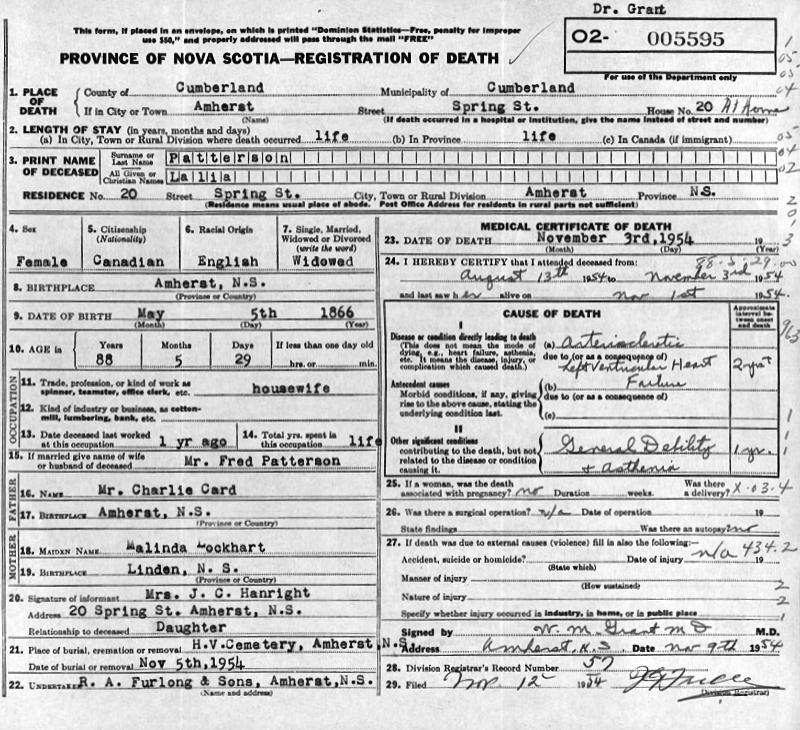 Dr. Grant
This form, if placed in an envelope, on which is printed "Dominion Statistics—Free, penalty for improper
use $50," and properly addressed will pass through the mail "FREE"
O2- 005595
PROVINCE OF NOVA SCOTIA—REGISTRATION OF DEATH
For use of the Department only
1. PLACE OF DEATH County of Cumberland Municipality of Cumberland
If in City or Town Amherst Street Spring St. House No. 20 At Home
(Name) (If death occurred in a hospital or institution, give the name instead of street and number)
2. LENGTH OF STAY (in years, months and days)
(a) In City, Town or Rural Division where death occurred life (b) In Province life (c) In Canada (if immigrant)
3. PRINT NAME OF DECEASED Surname or Last Name Patterson
All Given or Christian Names Lalia
RESIDENCE No. 20 Street Spring St. City, Town or Rural Division Amherst Province N.S.
(Residence means usual place of abode. Post Office Address for residents in rural parts not sufficient)
4. Sex Female
5. Citizenship (Nationality) Canadian
6. Racial Origin English
7. Single, Married, Widowed or Divorced (write the word) Widowed
8. BIRTHPLACE Amherst, N.S.
(Province or Country)
9. DATE OF BIRTH May 5th 1866
(Month) (Day) (Year)
10. AGE in Years 88 Months 5 Days 29 If less than one day old
hrs. or min.
OCCUPATION
11. Trade, profession, or kind of work as spinner, teamster, office clerk, etc. housewife
12. Kind of industry or business, as cotton-mill, lumbering, bank, etc.
13. Date deceased last worked at this occupation 1 yr ago 14. Total yrs. spent in this occupation life
15. If married give name of wife or husband of deceased Mr. Fred Patterson
FATHER
16. NAME Mr. Charlie Card
17. BIRTHPLACE Amherst, N.S.
(Province or Country)
MOTHER
18. MAIDEN NAME Malinda Lockhart
19. BIRTHPLACE Linden, N. S.
(Province or Country)
20. Signature of informant Mrs. J. C. Hanright
Address 20 Spring St. Amherst, N.S.
Relationship to deceased Daughter
21. Place of burial, cremation or removal H.V.Cemetery, Amherst, N.S.
Date of burial or removal Nov 5th, 1954
22. UNDERTAKER R. A. Furlong & Sons, Amherst,N.S.
(Name and address)
MEDICAL CERTIFICATE OF DEATH
23. DATE OF DEATH November 3rd,1954 19
(Month) (Day) (Year)
24. I HEREBY CERTIFY that I attended deceased from: 88-5-29-00
August 13th 1954 to November 3rd 1954
and last saw her alive on Nov 1st 1954.
CAUSE OF DEATH
Approximate interval between onset and death
I
Disease or condition directly leading to death
(This does not mean the mode of dying, e.g., heart failure, asthenia, etc. It means the disease, injury, or complication which caused death.)
(a) Arteriosclerotic
due to (or as a consequence of)
Left Ventricular Heart 2 yrs
Antecedent causes
Morbid conditions, if any, giving rise to the above cause, stating the underlying condition last.
(b) Failure
due to (or as a consequence of)
(c)
II
Other significant conditions
contributing to the death, but not related to the disease or condition causing it.
General Debility 1 yr.
+ Asthenia
25. If a woman, was the death associated with pregnancy? no Duration weeks. Was there a delivery? X-03.4
26. Was there a surgical operation? n/a Date of operation 19
State findings Was there an autopsy? no
27. If death was due to external causes (violence) fill in also the following:—
Accident, suicide or homicide? Date of injury n/a 434.2 19
(State which)
Manner of injury
(How sustained)
Nature of injury
Specify whether injury occurred in industry, in home, or in public place
Signed by W. M. Grant MD M.D.
Address Amherst, N.S. Date Nov 9th 1954
28. Division Registrar's Record Number 57
29. Filed Nov. 12 1954
Division Registrar